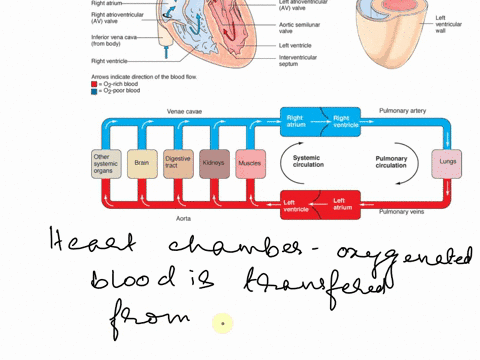 Right atrium
Left atrioventricular
(AV) valve
Right atrioventricular
(AV) valve
Aortic semilunar
valve
Inferior vena cava
(from body)
Left ventricle
Right ventricle
Interventricular
septum
Left
ventricular
wall
Arrows indicate direction of the blood flow.
= O2-rich blood
= O2-poor blood
Venae cavae
Pulmonary artery
Right
atrium
Right
ventricle
Other
systemic
organs
Brain
Digestive
tract
Kidneys
Muscles
Systemic
circulation
Pulmonary
circulation
Lungs
Left
ventricle
Left
atrium
Aorta
Pulmonary veins
Heart chamber - oxygenated
blood is transfered
from